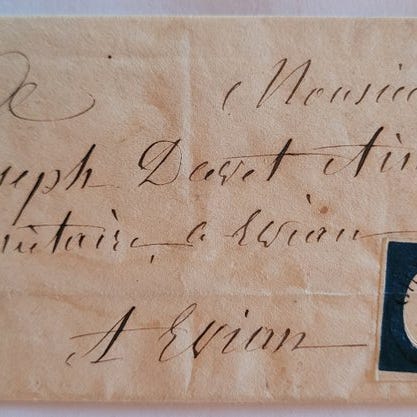 Monsieu
seph Davet Ain
riétaire, à Evian
A Evian